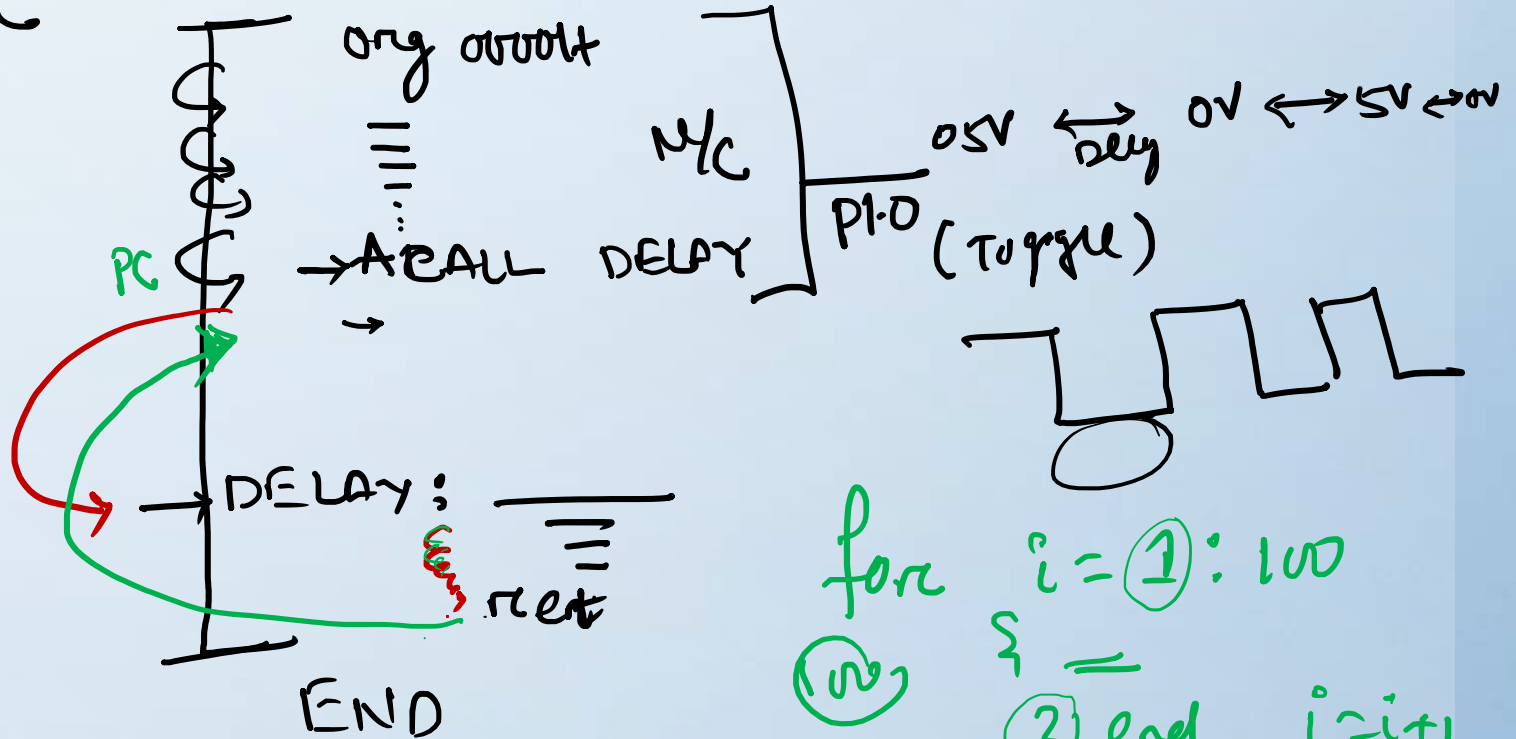 org 0000H
PC
→ ACALL DELAY
→
→ DELAY:
ret
END
M/C
P1.0
05V ↔ 0V ↔ 5V ↔ 0V
Delay
(Toggle)
for i = 1 : 100
100
{
2) end i = i+1